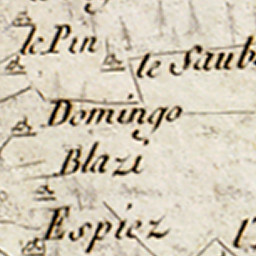 le Pin
le Saub
Domingo
Blazi
Espiez